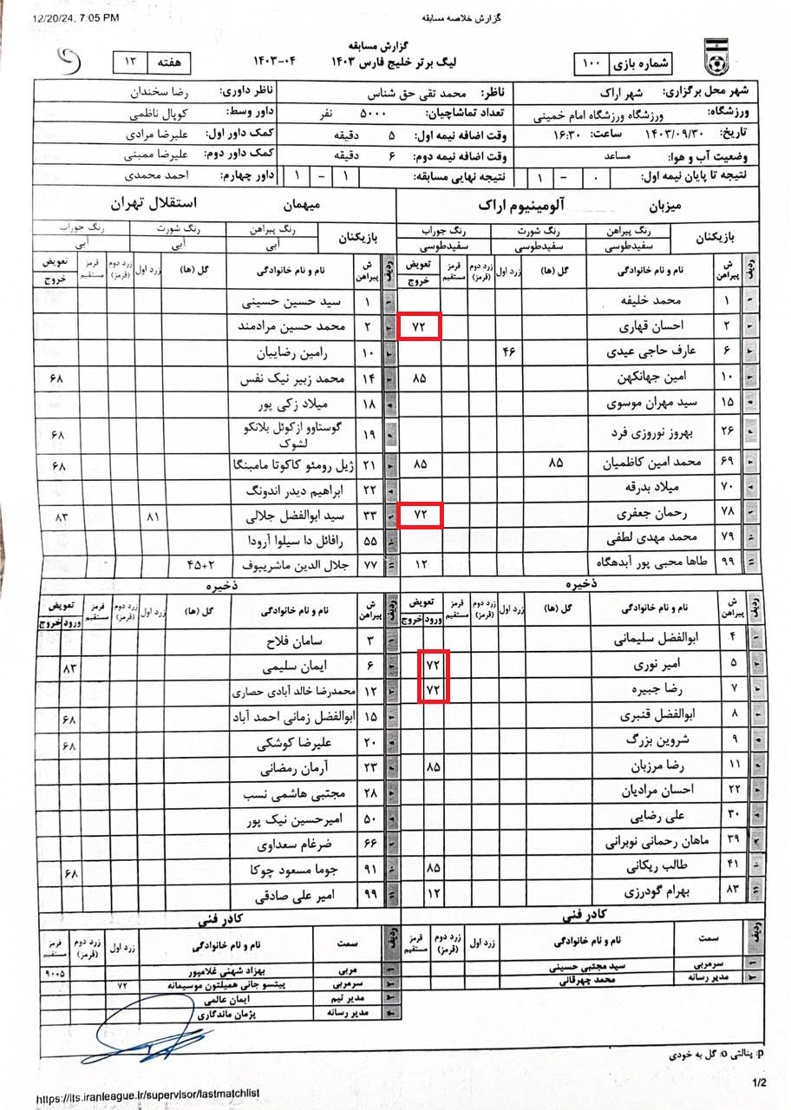 12/20/24, 7:05 PM
گزارش خلاصه مسابقه
گزارش مسابقه
شماره بازی ۱۰۰
لیگ برتر خلیج فارس ۱۴۰۳
۱۴۰۳-۰۴
هفته ۱۳
شهر محل برگزاری: شهر اراک
ناظر: محمد تقی حق شناس
ناظر داوری: رضا سخندان
ورزشگاه: ورزشگاه ورزشگاه امام خمینی
تعداد تماشاچیان: ۵۰۰۰ نفر
داور وسط: کوپال ناظمی
تاریخ: ۱۴۰۳/۰۹/۳۰ ساعت: ۱۶:۳۰
وقت اضافه نیمه اول: ۵ دقیقه
کمک داور اول: علیرضا مرادی
وضعیت آب و هوا: مساعد
وقت اضافه نیمه دوم: ۶ دقیقه
کمک داور دوم: علیرضا ممبنی
نتیجه تا پایان نیمه اول: ۰ - ۱
نتیجه نهایی مسابقه: ۱ - ۱
داور چهارم: احمد محمدی
میزبان آلومینیوم اراک
بازیکنان
رنگ پیراهن رنگ شورت رنگ جوراب
سفیدطوسی سفیدطوسی سفیدطوسی
ردیف ش پیراهن نام و نام خانوادگی گل (ها) زرد اول زرد دوم (قرمز) قرمز مستقیم تعویض خروج
۱ ۱ محمد خلیفه
۲ ۲ احسان قهاری ۷۲
۳ ۶ عارف حاجی عیدی ۴۶
۴ ۱۰ امین جهانکهن ۸۵
۵ ۱۵ سید مهران موسوی
۶ ۲۶ بهروز نوروزی فرد
۷ ۶۹ محمد امین کاظمیان ۸۵ ۸۵
۸ ۷۰ میلاد بدرقه
۹ ۷۸ رحمان جعفری ۷۲
۱۰ ۷۹ محمد مهدی لطفی
۱۱ ۹۹ طاها محبی پور آبدهگاه ۱۲
ذخیره
ردیف ش پیراهن نام و نام خانوادگی گل (ها) زرد اول زرد دوم (قرمز) قرمز مستقیم تعویض ورود خروج
۱ ۴ ابوالفضل سلیمانی
۲ ۵ امیر نوری ۷۲
۳ ۷ رضا جبیره ۷۲
۴ ۸ ابوالفضل قنبری
۵ ۹ شروین بزرگ
۶ ۱۱ رضا مرزبان ۸۵
۷ ۲۲ احسان مرادیان
۸ ۳۰ علی رضایی
۹ ۳۹ ماهان رحمانی نوبرانی
۱۰ ۴۱ طالب ریکانی ۸۵
۱۱ ۸۳ بهرام گودرزی ۱۲
کادر فنی
ردیف سمت نام و نام خانوادگی زرد اول زرد دوم (قرمز) قرمز مستقیم
۱ سرمربی سید مجتبی حسینی
۲ مدیر رسانه محمد چهرقانی
میهمان استقلال تهران
بازیکنان
رنگ پیراهن رنگ شورت رنگ جوراب
آبی آبی آبی
ردیف ش پیراهن نام و نام خانوادگی گل (ها) زرد اول زرد دوم (قرمز) قرمز مستقیم تعویض خروج
۱ ۱ سید حسین حسینی
۲ ۲ محمد حسین مرادمند
۳ ۱۰ رامین رضاییان
۴ ۱۴ محمد زبیر نیک نفس ۶۸
۵ ۱۸ میلاد زکی پور
۶ ۱۹ گوستاوو ازکوئل بلانکو لشوک ۶۸
۷ ۲۱ ژیل رومئو کاکوتا مامبنگا ۶۸
۸ ۲۲ ابراهیم دیدر اندونگ
۹ ۳۳ سید ابوالفضل جلالی ۸۱ ۸۳
۱۰ ۵۵ رافائل دا سیلوا آرودا
۱۱ ۷۷ جلال الدین ماشریپوف ۴۵+۲
ذخیره
ردیف ش پیراهن نام و نام خانوادگی گل (ها) زرد اول زرد دوم (قرمز) قرمز مستقیم تعویض ورود خروج
۱ ۳ سامان فلاح
۲ ۶ ایمان سلیمی ۸۳
۳ ۱۲ محمدرضا خالد آبادی حصاری
۴ ۱۵ ابوالفضل زمانی احمد آباد ۶۸
۵ ۲۰ علیرضا کوشکی ۶۸
۶ ۲۳ آرمان رمضانی
۷ ۲۸ مجتبی هاشمی نسب
۸ ۵۰ امیرحسین نیک پور
۹ ۶۶ ضرغام سعداوی
۱۰ ۹۱ جوما مسعود چوکا ۶۸
۱۱ ۹۹ امیر علی صادقی
کادر فنی
ردیف سمت نام و نام خانوادگی زرد اول زرد دوم (قرمز) قرمز مستقیم
۱ مربی بهزاد شهنی غلامپور ۹۰۰۵
۲ سرمربی پیتسو جانی همیلتون موسیمانه ۷۲
۳ مدیر تیم ایمان عالمی
۴ مدیر رسانه پژمان ماندگاری
p: پنالتی o: گل به خودی
https://its.iranleague.ir/supervisor/lastmatchlist
1/2